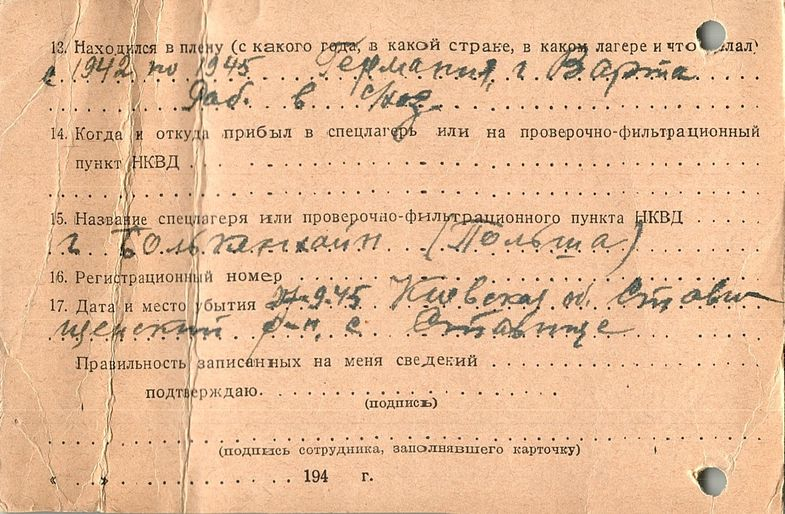 13. Находился в плену (с какого года, в какой стране, в каком лагере и что делал)
с 1942 по 1945 Германия, г. Варта
Раб. в с/хоз
14. Когда и откуда прибыл в спецлагерь или на проверочно-фильтрационный
пункт НКВД
15. Название спецлагеря или проверочно-фильтрационного пункта НКВД
г. Болькенхайн (Польша)
16. Регистрационный номер
17. Дата и место убытия 27-9-45 Киевская об. Стави
щенский р-н, с. Ставище
Правильность записанных на меня сведений
подтверждаю.
(подпись)
(подпись сотрудника, заполнявшего карточку)
« » 194 г.